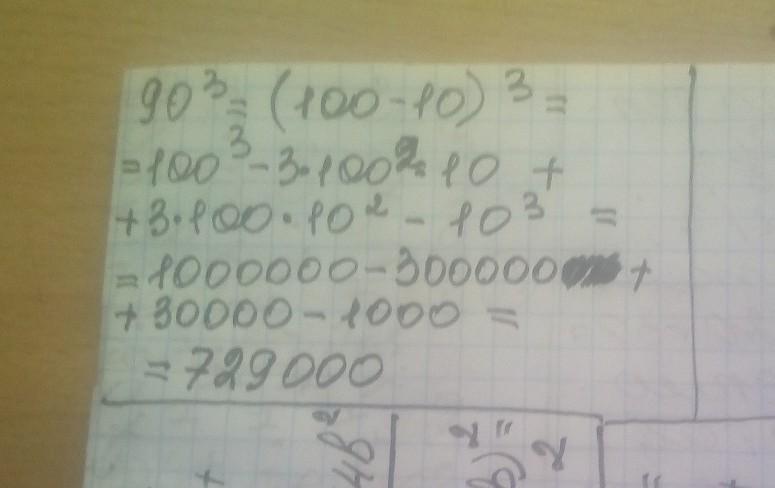 90³ = (100 - 10)³ =
= 100³ - 3·100²·10 +
+ 3·100·10² - 10³ =
= 1000000 - 300000 +
+ 30000 - 1000 =
= 729000
4b²
b)² =
2